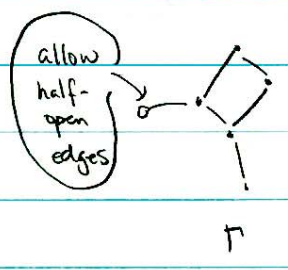 allow
half-
open
edges
Γ